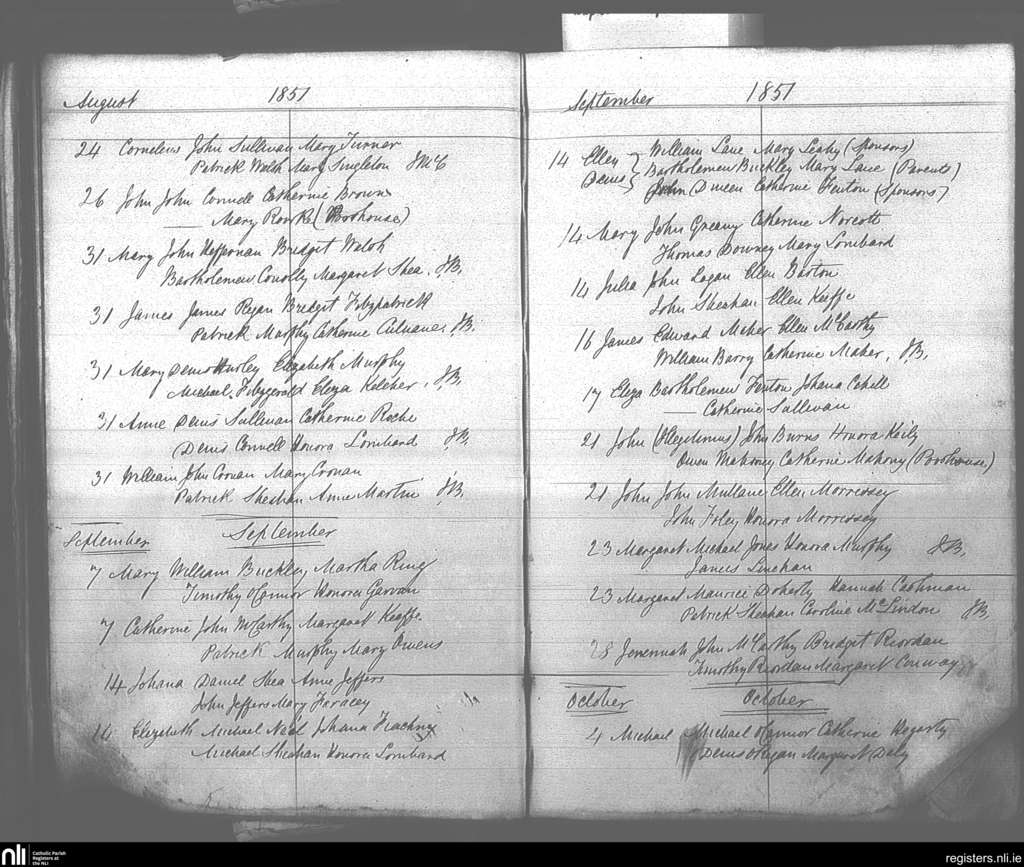 August 1851
24 Cornelius John Sullivan Mary Turner
Patrick Walsh Mary Singleton JMcC
26 John John Connell Catherine Brown
Mary Rourke (Poorhouse)
31 Mary John Heffernan Bridget Walsh
Bartholemew Conolly Margaret Shea. JB,
31 James James Regan Bridget Fitzpatrick
Patrick Murphy Catherine JB,
31 Mary Denis Hurley Elizabeth Murphy
Michael Fitzgerald Eliza Keleher. JB,
31 Anne Denis Sullivan Catherine Roche
Denis Connell Honora Lombard JB,
31 William John Cronan Mary Cronan
Patrick Sheahan Anne Martin JB,
September September
7 Mary William Buckley Martha Ring
Timothy OConnor Honora Garvan
7 Catherine John McCarthy Margaret Keaffe
Patrick Murphy Mary Owens
14 Johana Daniel Shea Anne Jeffers
John Jeffers Mary Faracey
14 Elizabeth Michael Neal Johana
Michael Sheahan Honora Lombard
September 1851
14 Ellen William Lane Mary Leahy (Sponsors)
Denis Bartholemew Buckley Mary Lane (Parents)
John Dineen Catherine Fenton (Sponsors)
14 Mary John Greany Catherine Norcott
Thomas Downey Mary Lombard
14 Julia John Logan Ellen Barton
John Sheahan Ellen Keeffe
16 James Edward Maher Ellen McCarthy
William Barry Catherine Maher, JB,
17 Eliza Bartholemew Fenton Johana Cahill
Catherine Sullivan
21 John (Illegitimus) John Burns Honora Kiely
Owen Mahoney Catherine Mahony (Poorhouse)
21 John John Mullane Ellen Morrissey
John Foley Honora Morrissey
23 Margaret Michael Jones Honora Murphy JB,
James Linehan
23 Margaret Maurice Doherty Hannah Cashman
Patrick Sheahan Caroline McLindon JB,
28 Jeremiah John McCarthy Bridget Riordan
Timothy Riordan Margaret Conway
October October
4 Michael Michael OConnor Catherine Hegarty
Denis ORegan Margaret Daly
nli Catholic Parish
Registers at
the NLI
registers.nli.ie